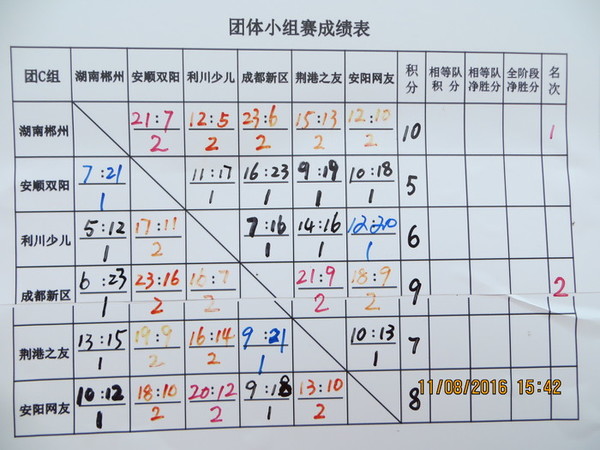 团体小组赛成绩表
团C组 湖南郴州 安顺双阳 利川少儿 成都新区 荆港之友 安阳网友 积分 相等队积分 相等队净胜分 全阶段净胜分 名次
湖南郴州 21:7 12:5 23:6 15:13 12:10 10 1
2 2 2 2 2
安顺双阳 7:21 11:17 16:23 9:19 10:18 5
1 1 1 1 1
利川少儿 5:12 17:11 7:16 14:16 12:20 6
1 2 1 1 1
成都新区 6:23 23:16 16:7 21:9 18:9 9 2
1 2 2 2 2
荆港之友 13:15 19:9 16:14 9:21 10:13 7
1 2 2 1 1
安阳网友 10:12 18:10 20:12 9:18 13:10 8
1 2 2 1 2
11/08/2016 15:42